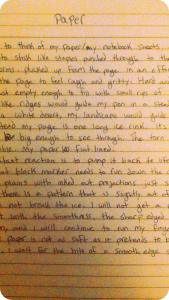 Paper
to think of my paper/my notebook sheets
to stick like shapes pushed through to the
forms plucked up from the page. in an effort
the page to feel rough and gritty. Hard and
just empty enough to fit with small rows of
like ridges would guide my pen in a
white desert, my landscape would guide
my page is one long ice rink. it's
big enough to see through. The torn
My paper is flat lined.
reaction is to pump it back to life
black marker needs to run down the
plains with inked out projections. use
there is a pattern that is slightly out of
not break the ice. I will not get a
with the smoothness, the sharp edged
and I will continue to run my finger
paper is not as soft as it pretends to be
I wait for the bite of a smooth edge